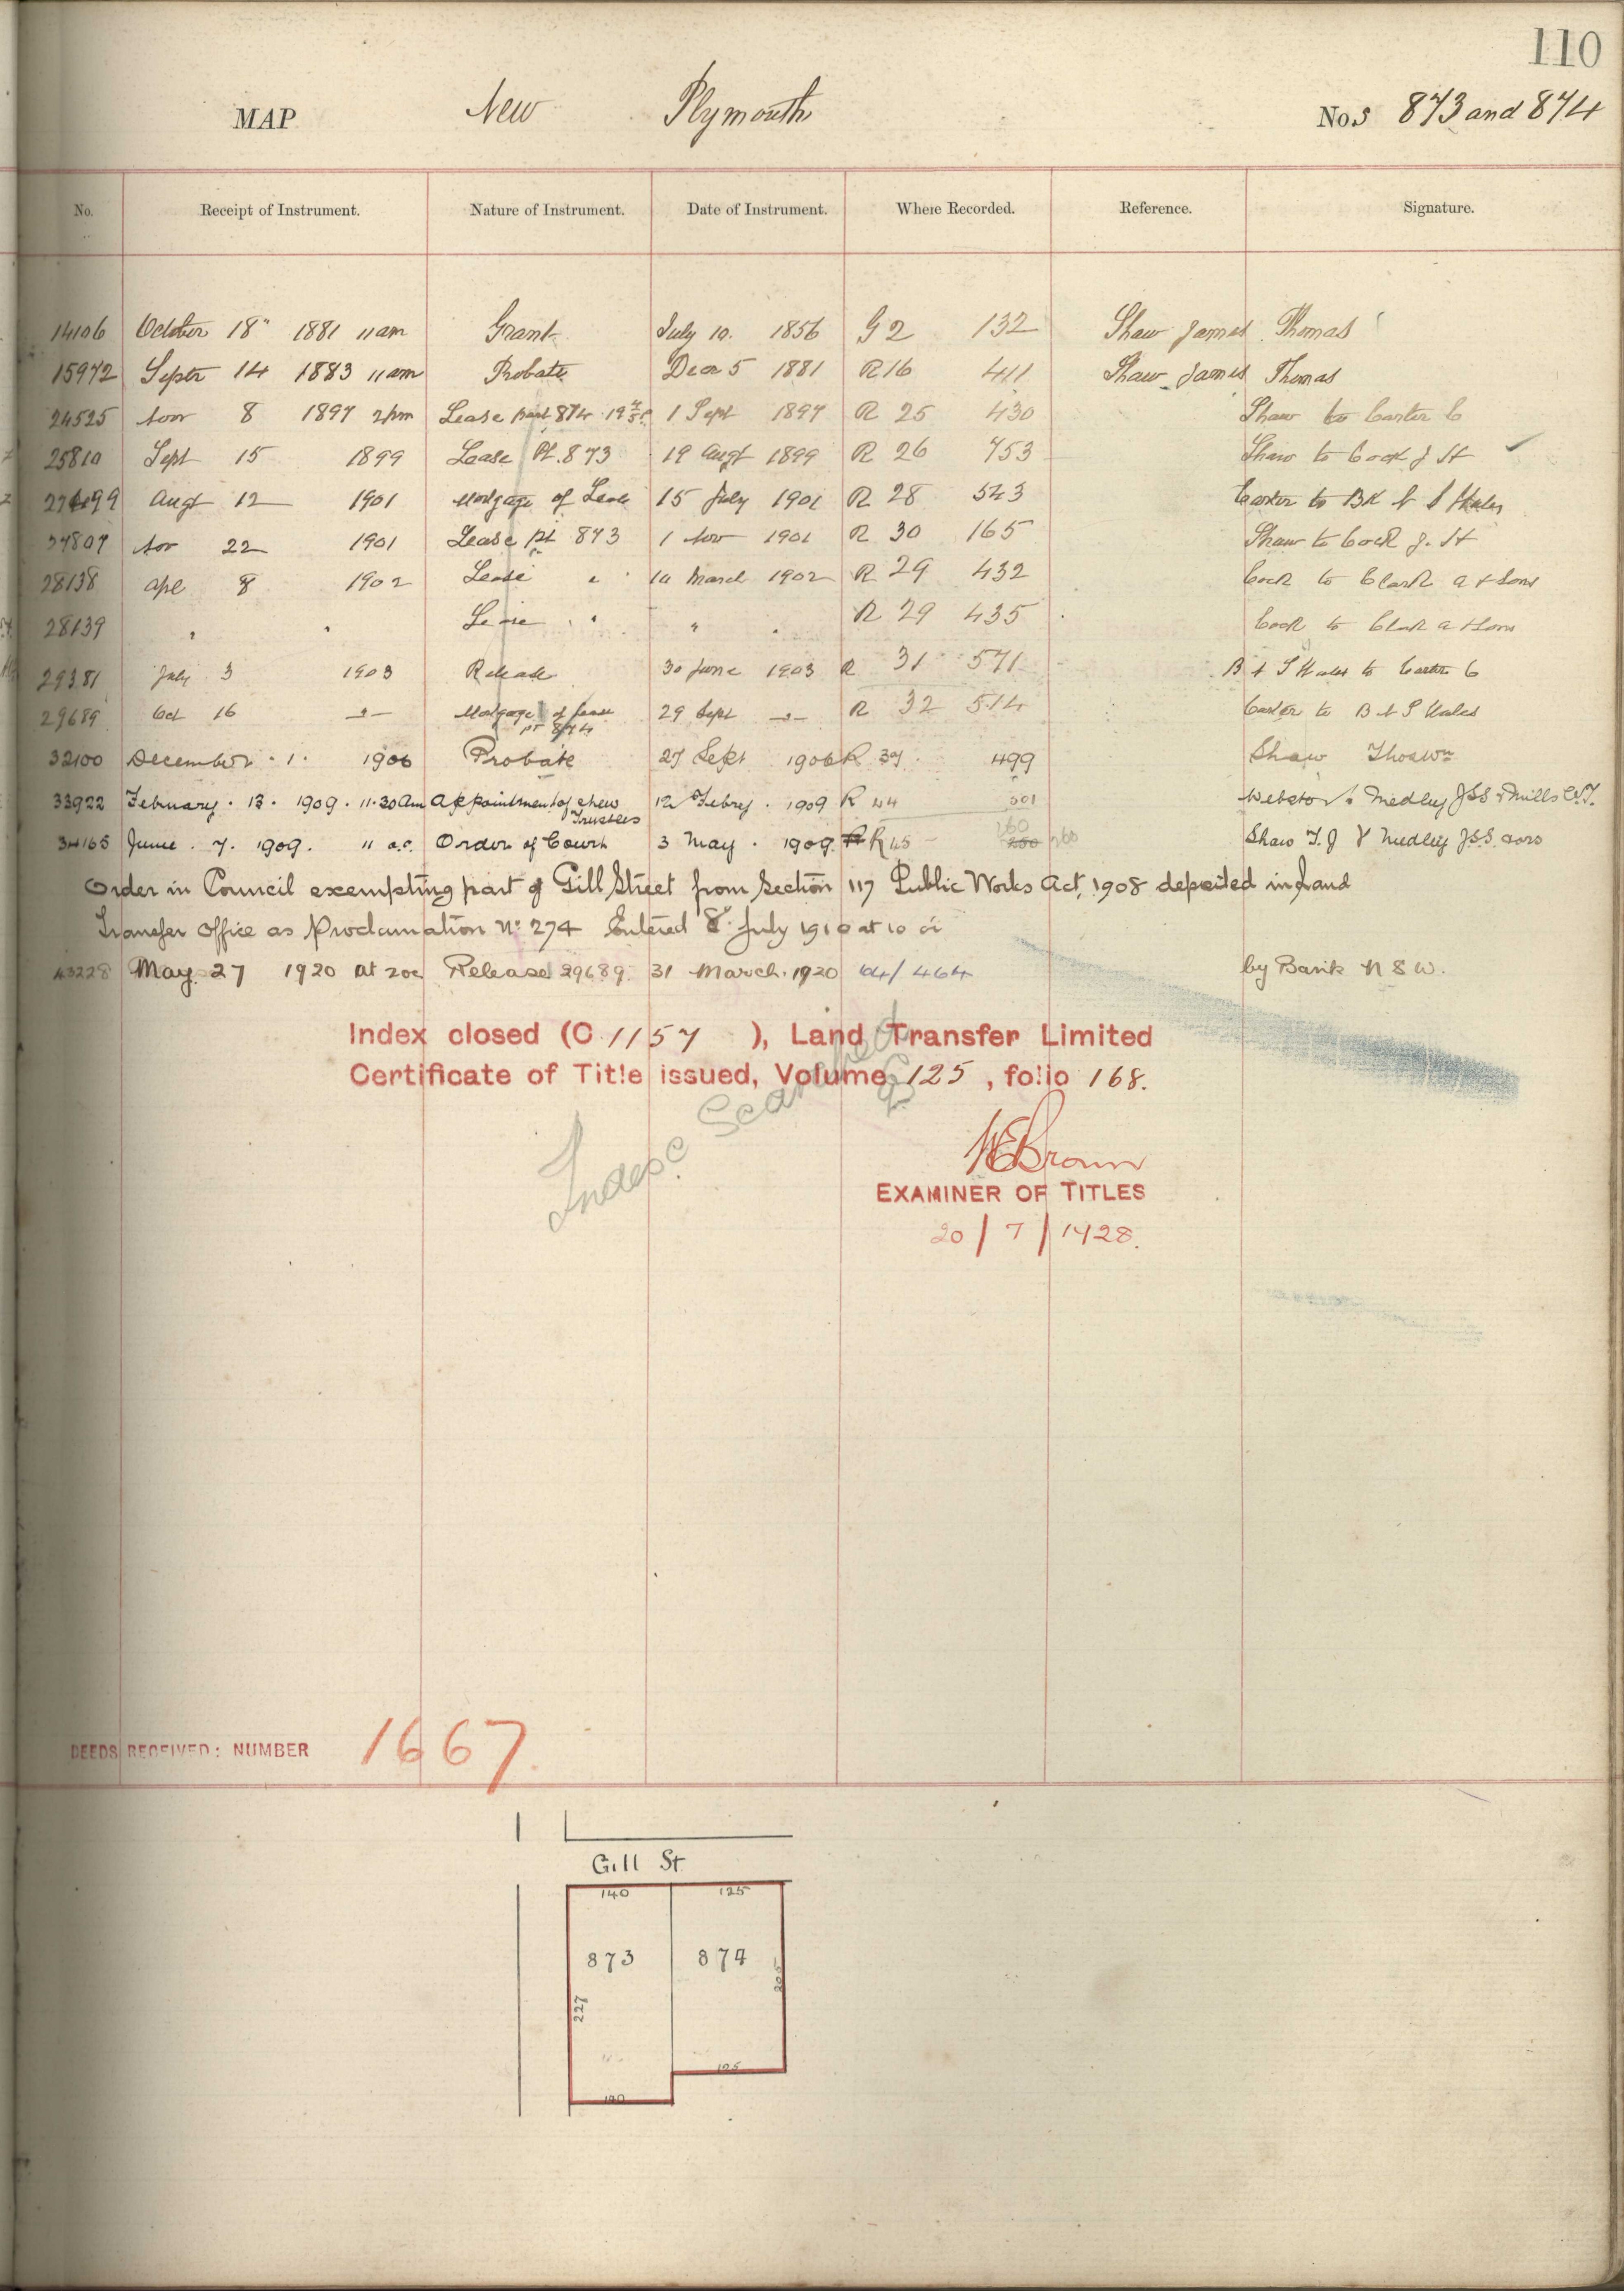 110
MAP New Plymouth Nos 873 and 874
No. Receipt of Instrument. Nature of Instrument. Date of Instrument. Where Recorded. Reference. Signature.
14106 October 18" 1881 11am Grant July 10. 1856 G 2 132 Shaw James Thomas
15972 Septr 14 1883 11am Probate Decr 5 1881 R 16 411 Shaw James Thomas
24525 Nov 8 1897 2pm Lease part 874 1 Sept 1897 R 25 430 Shaw to Carter C
25810 Sept 15 1899 Lease Pt. 873 19 Augt 1899 R 26 753 Shaw to Cock J H
Augt 12 1901 Mortgage of Lease 15 July 1901 R 28 543 Carter to BK N S Wales
27807 Nov 22 1901 Lease pt 873 1 Nov 1901 R 30 165 Shaw to Cock J. H
28138 Apl 8 1902 Lease " 14 March 1902 R 29 432 Cock to Clark A & Sons
28139 " " Lease " " " R 29 435 Cock to Clark A & Sons
29381 July 3 1903 Release 30 June 1903 R 31 571 B N S Wales to Carter C
29689 Oct 16 -"- Mortgage of Lease 29 Sept -"- R 32 514 Carter to B N S Wales
pt 874
32100 December . 1 . 1906 Probate 27 Sept 1906 R 37. 499 Shaw Thos Wm
33922 February . 13 . 1909 . 11.30 am Appointment of New 12 Febry . 1909 R 44 301 Webster to Medley JSS & Mills
Trustees
34165 June . 7. 1909. 11 Order of Court 3 May . 1909. R 45 260 Shaw T. J & Medley JSS
Order in Council exempting part of Gill Street from Section 117 Public Works Act, 1908 deposited in Land
Transfer Office as Proclamation No 274 Entered 8 July 1910 at 10
43228 May 27 1920 at 2oc Release 29689 31 March 1920 64/464 by Bank N S W.
Index closed (C 1157 ), Land Transfer Limited
Certificate of Title issued, Volume 125 , folio 168.
Index Searched
W E Brown
EXAMINER OF TITLES
20 / 7 / 1928.
DEEDS RECEIVED: NUMBER 1667.
Gill St
140 125
873 874
227 205
125
140